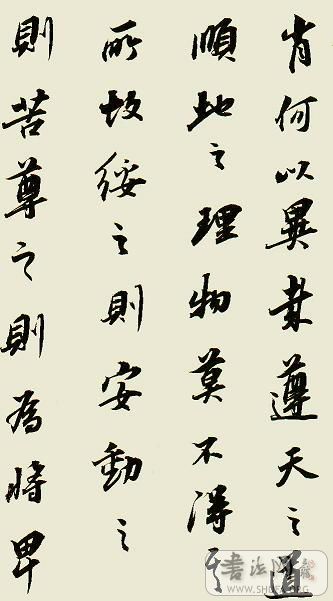 肖何以異哉遵天之道
順地之理物莫不得其
所故綏之則安動之
則苦尊之則為將卑